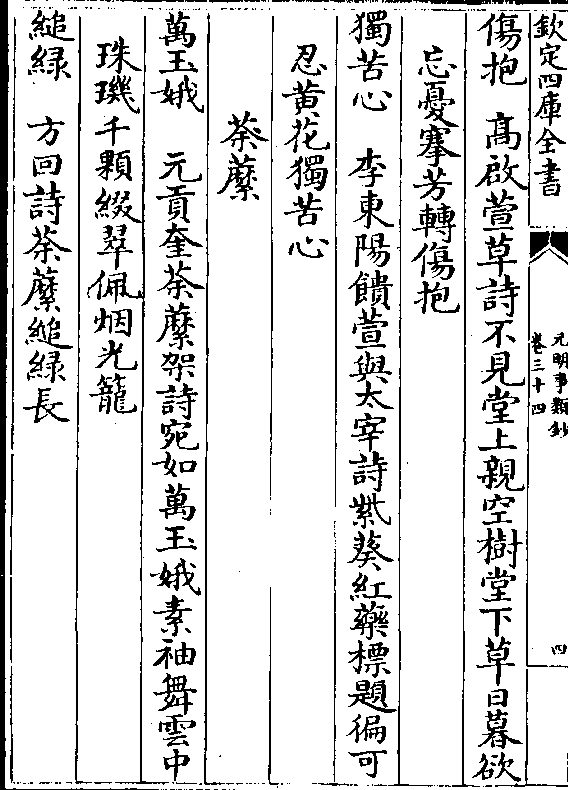 欽定四庫全書
元明事類鈔
卷三十四
四
傷抱　高啟萱草詩不見堂上親空樹堂下草日暮欲
忘憂搴芳轉傷抱
獨苦心　李東陽饋萱與太宰詩紫葵紅藥標題徧可
忍黄花獨苦心
荼蘼
萬玉娥　元貢奎荼蘼架詩宛如萬玉娥素袖舞雲中
珠璣千顆綴翠佩烟光籠
縋緑　方回詩荼蘼縋緑長